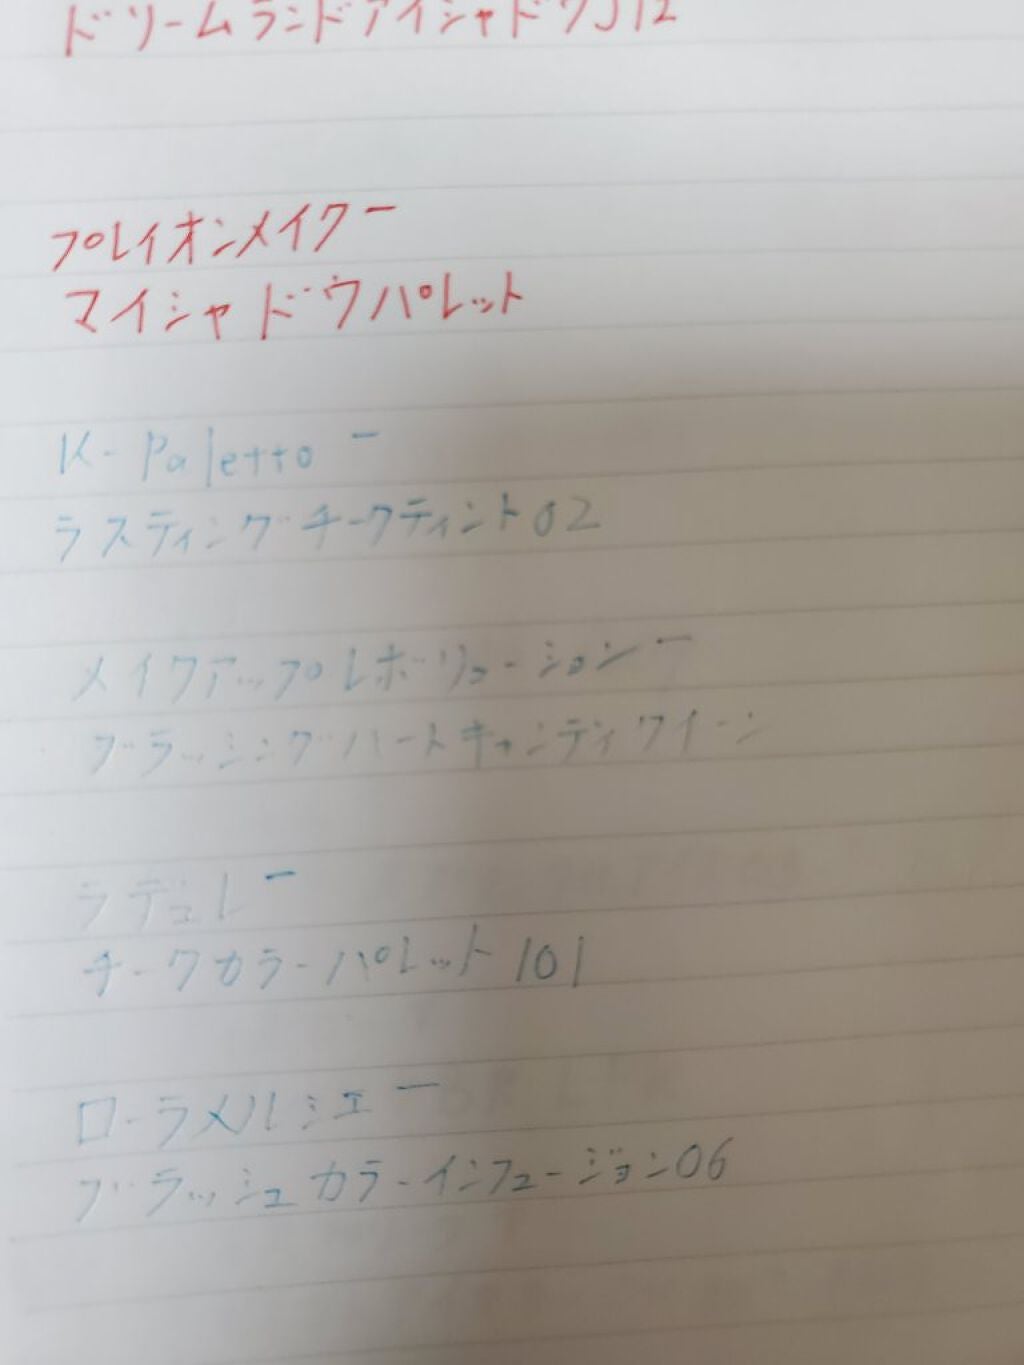 ドリームランドアイシャドウJ12
プレイオンメイクー
マイシャドウパレット
K-Paletto ー
ラスティングチークティント02
メイクアップレボリューションー
ブラッシングハートキャンディクイーン
ラデュレー
チークカラーパレット101
ローラメルシエー
ブラッシュカラーインフュージョン06